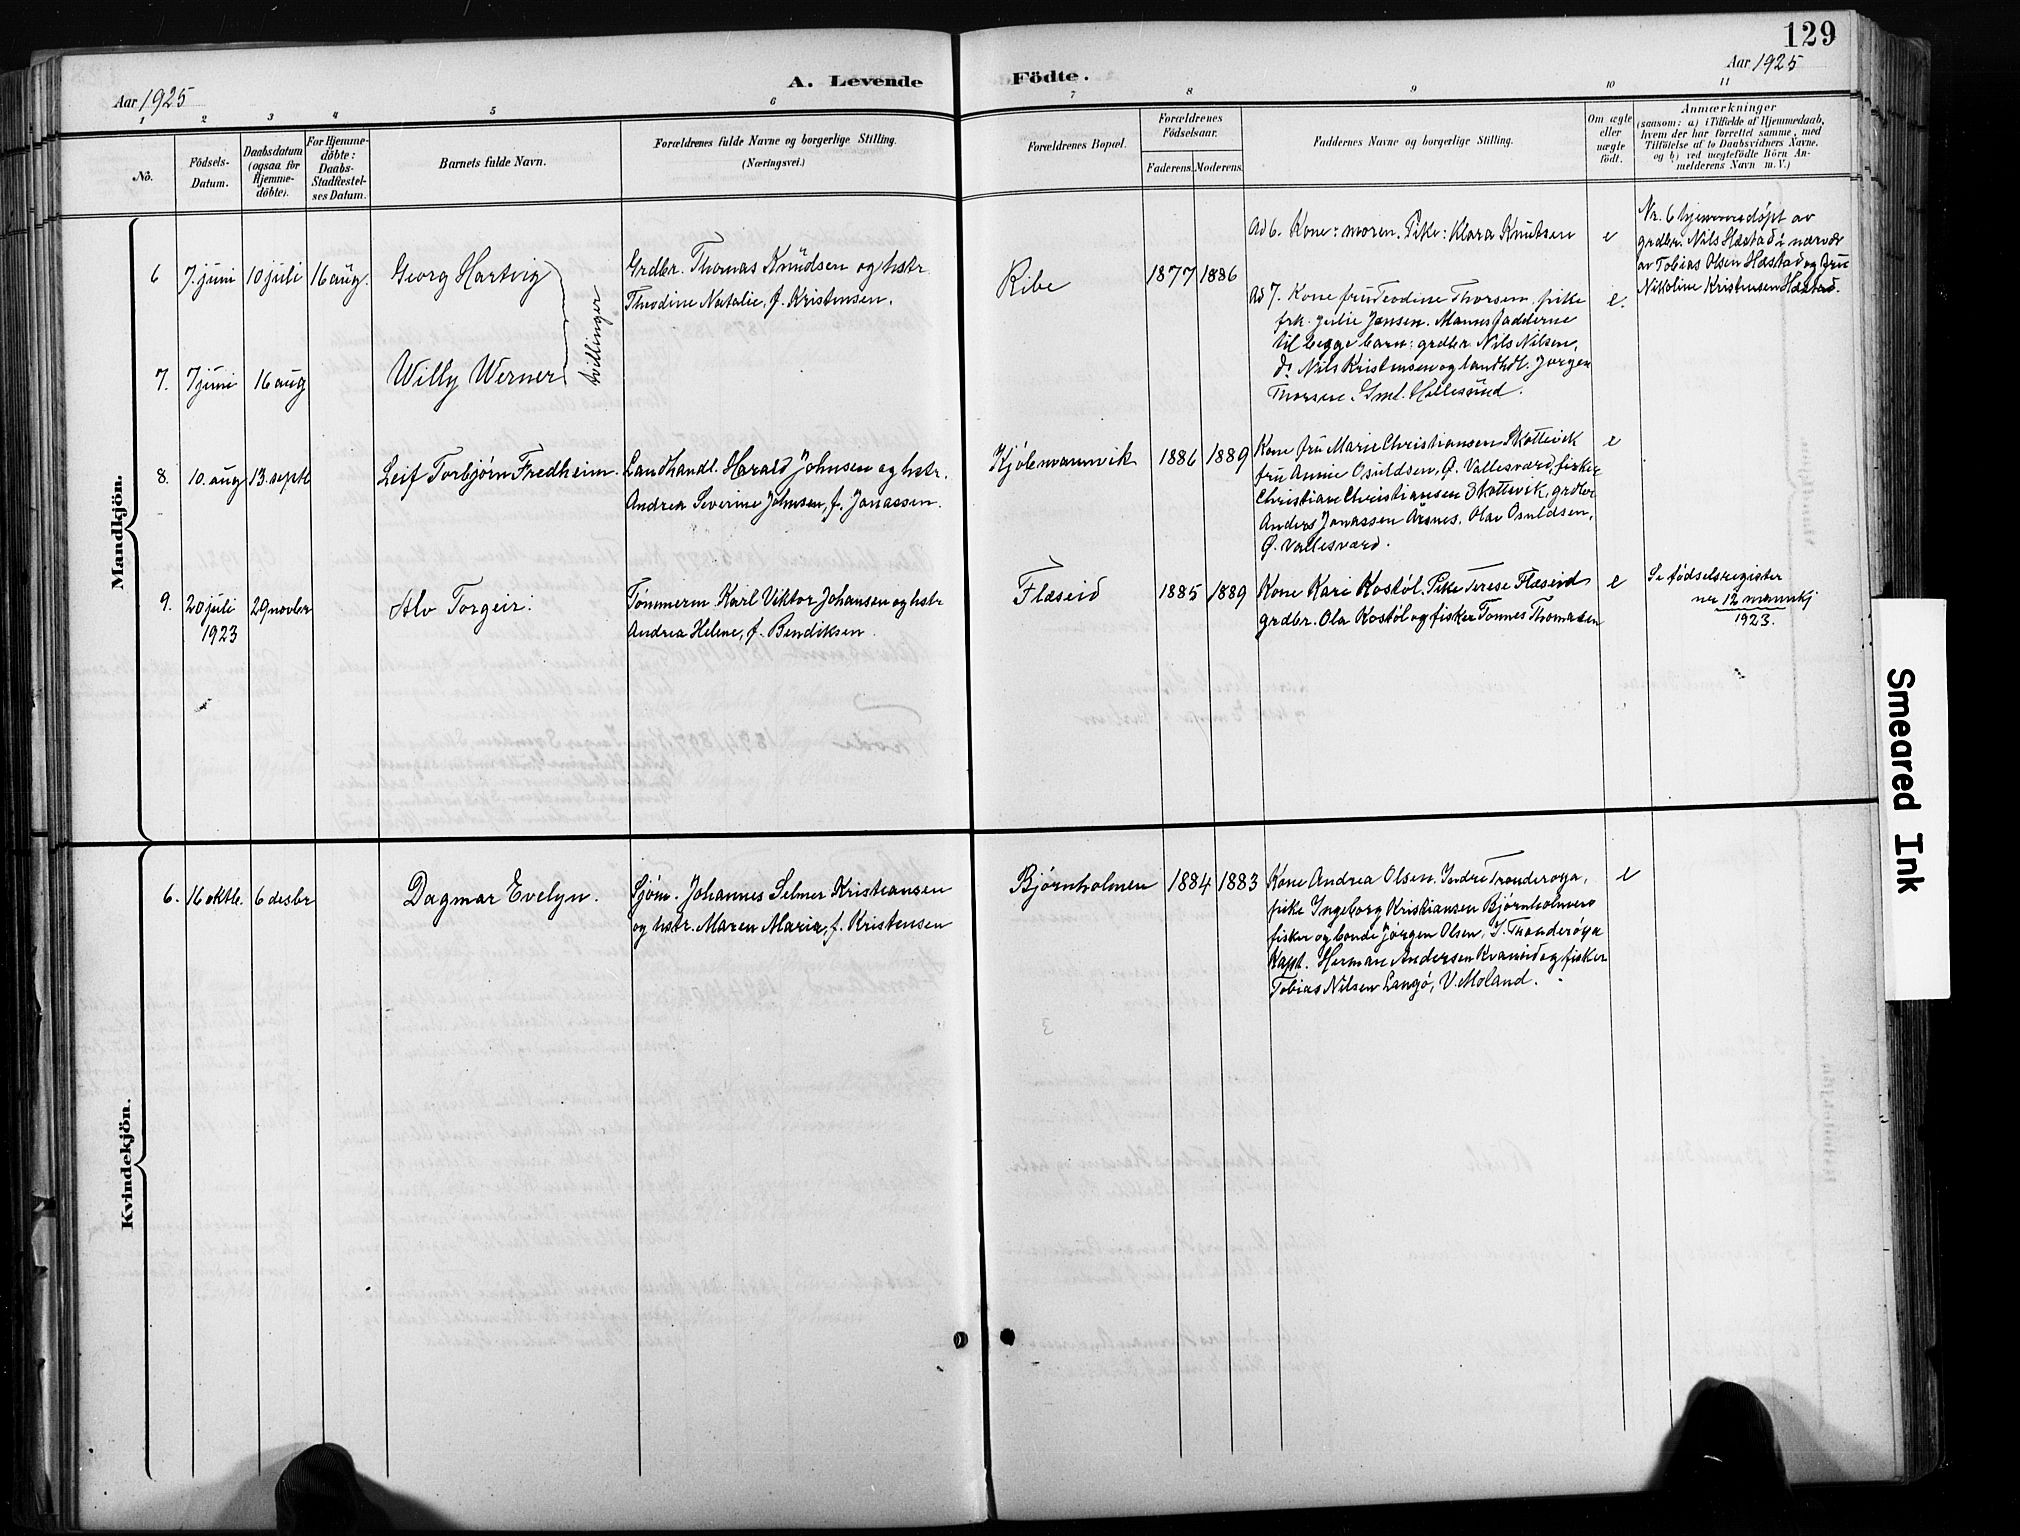 129
Aar 1925
A. Levende
Födte.
Aar 1925
1 2 3 4 5 6 7 8 9 10 11
No.
Födsels-
Datum.
Daabsdatum
(ogsaa for
Hjemme-
döbte).
For Hjemme-
döbte:
Daabs-
Stadfæstel-
ses Datum.
Barnets fulde Navn.
Forældrenes fulde Navne og borgerlige Stilling.
(Næringsvei.)
Forældrenes Bopæl.
Forældrenes
Födselsaar.
Faderens.
Moderens.
Faddernes Navne og borgerlige Stilling.
Om ægte
eller
uægte
födt.
Anmærkninger
(saasom: a) i Tilfælde af Hjemmedaab,
hvem der har forrettet samme, med
Tilföielse af to Daabsvidners Navne,
og b) ved uægtefödte Börn An-
melderens Navn m. V.)
Mandkjön.
6 7. juni 10 juli 16 aug. Georg Hartvig
Grdbr. Thomas Knudsen og hstr.
Theodine Natalie, f. Kristensen.
Ribe 1877 1886
Ad 6. Kone: moren. Pike: Klara Knutsen e
Nr. 6 hjemmedøpt av
grdbr. Nils Hæstad i nærvær
av Tobias Olsen Hæstad og fru
Nikoline Kristensen Hæstad.
tvillinger
7. 7 juni 16 aug Willy Werner
Ad 7. Kone fru Teodine Thorsen, pike e.
frk. Julie Jansen. Mannsfadderne
til begge barn: grdbr. Nils Nilsen,
do Nils Kristensen og landhdl. Jørgen
Thorsen. Gml. Hellesund.
8. 10. aug 13. septb Leif Torbjørn Fredheim.
Landhandl. Harald Johnsen og hstr.
Andrea Severine Johnsen, f. Jonassen.
Kjøbmannvik 1886 1889
Kone fru Marie Christiansen Skottevik e
fru Annie Osuldsen, Ø. Vallesværd, fisker
Christian Christiansen Skottevik, grdbr
Anders Jonassen Årsnes, Olav Osuldsen,
Ø. Vallesværd.
9. 20 juli 29 novbr Alv Torgeir.
1923
Tømmerm. Karl Viktor Johansen og hstr
Andrea Helene, f. Bendiksen.
Flæseid 1885 1889
Kone Kari Kostøl. Pike Terese Flæseid e
grdbr. Ola Kostøl og fisker Tønnes Thomasen
Se fødselsregister
nr 12 mannkj
1923.
Kvindekjön.
6. 16 oktb. 6 desbr Dagmar Evelyn.
Sjøm. Johannes Selmer Kristiansen
og hstr. Maren Marie, f. Kristensen
Bjørnholmen 1884 1883
Kone Andrea Olsen. Indre Tronderøya, e
pike Ingeborg Kristiansen Bjørnholmen
fisker og bonde Jørgen Olsen, I. Tronderøya
Kapt. Herman Andersen Kvaneid og fisker
Tobias Nilsen Langø, V. Moland.
Smeared Ink